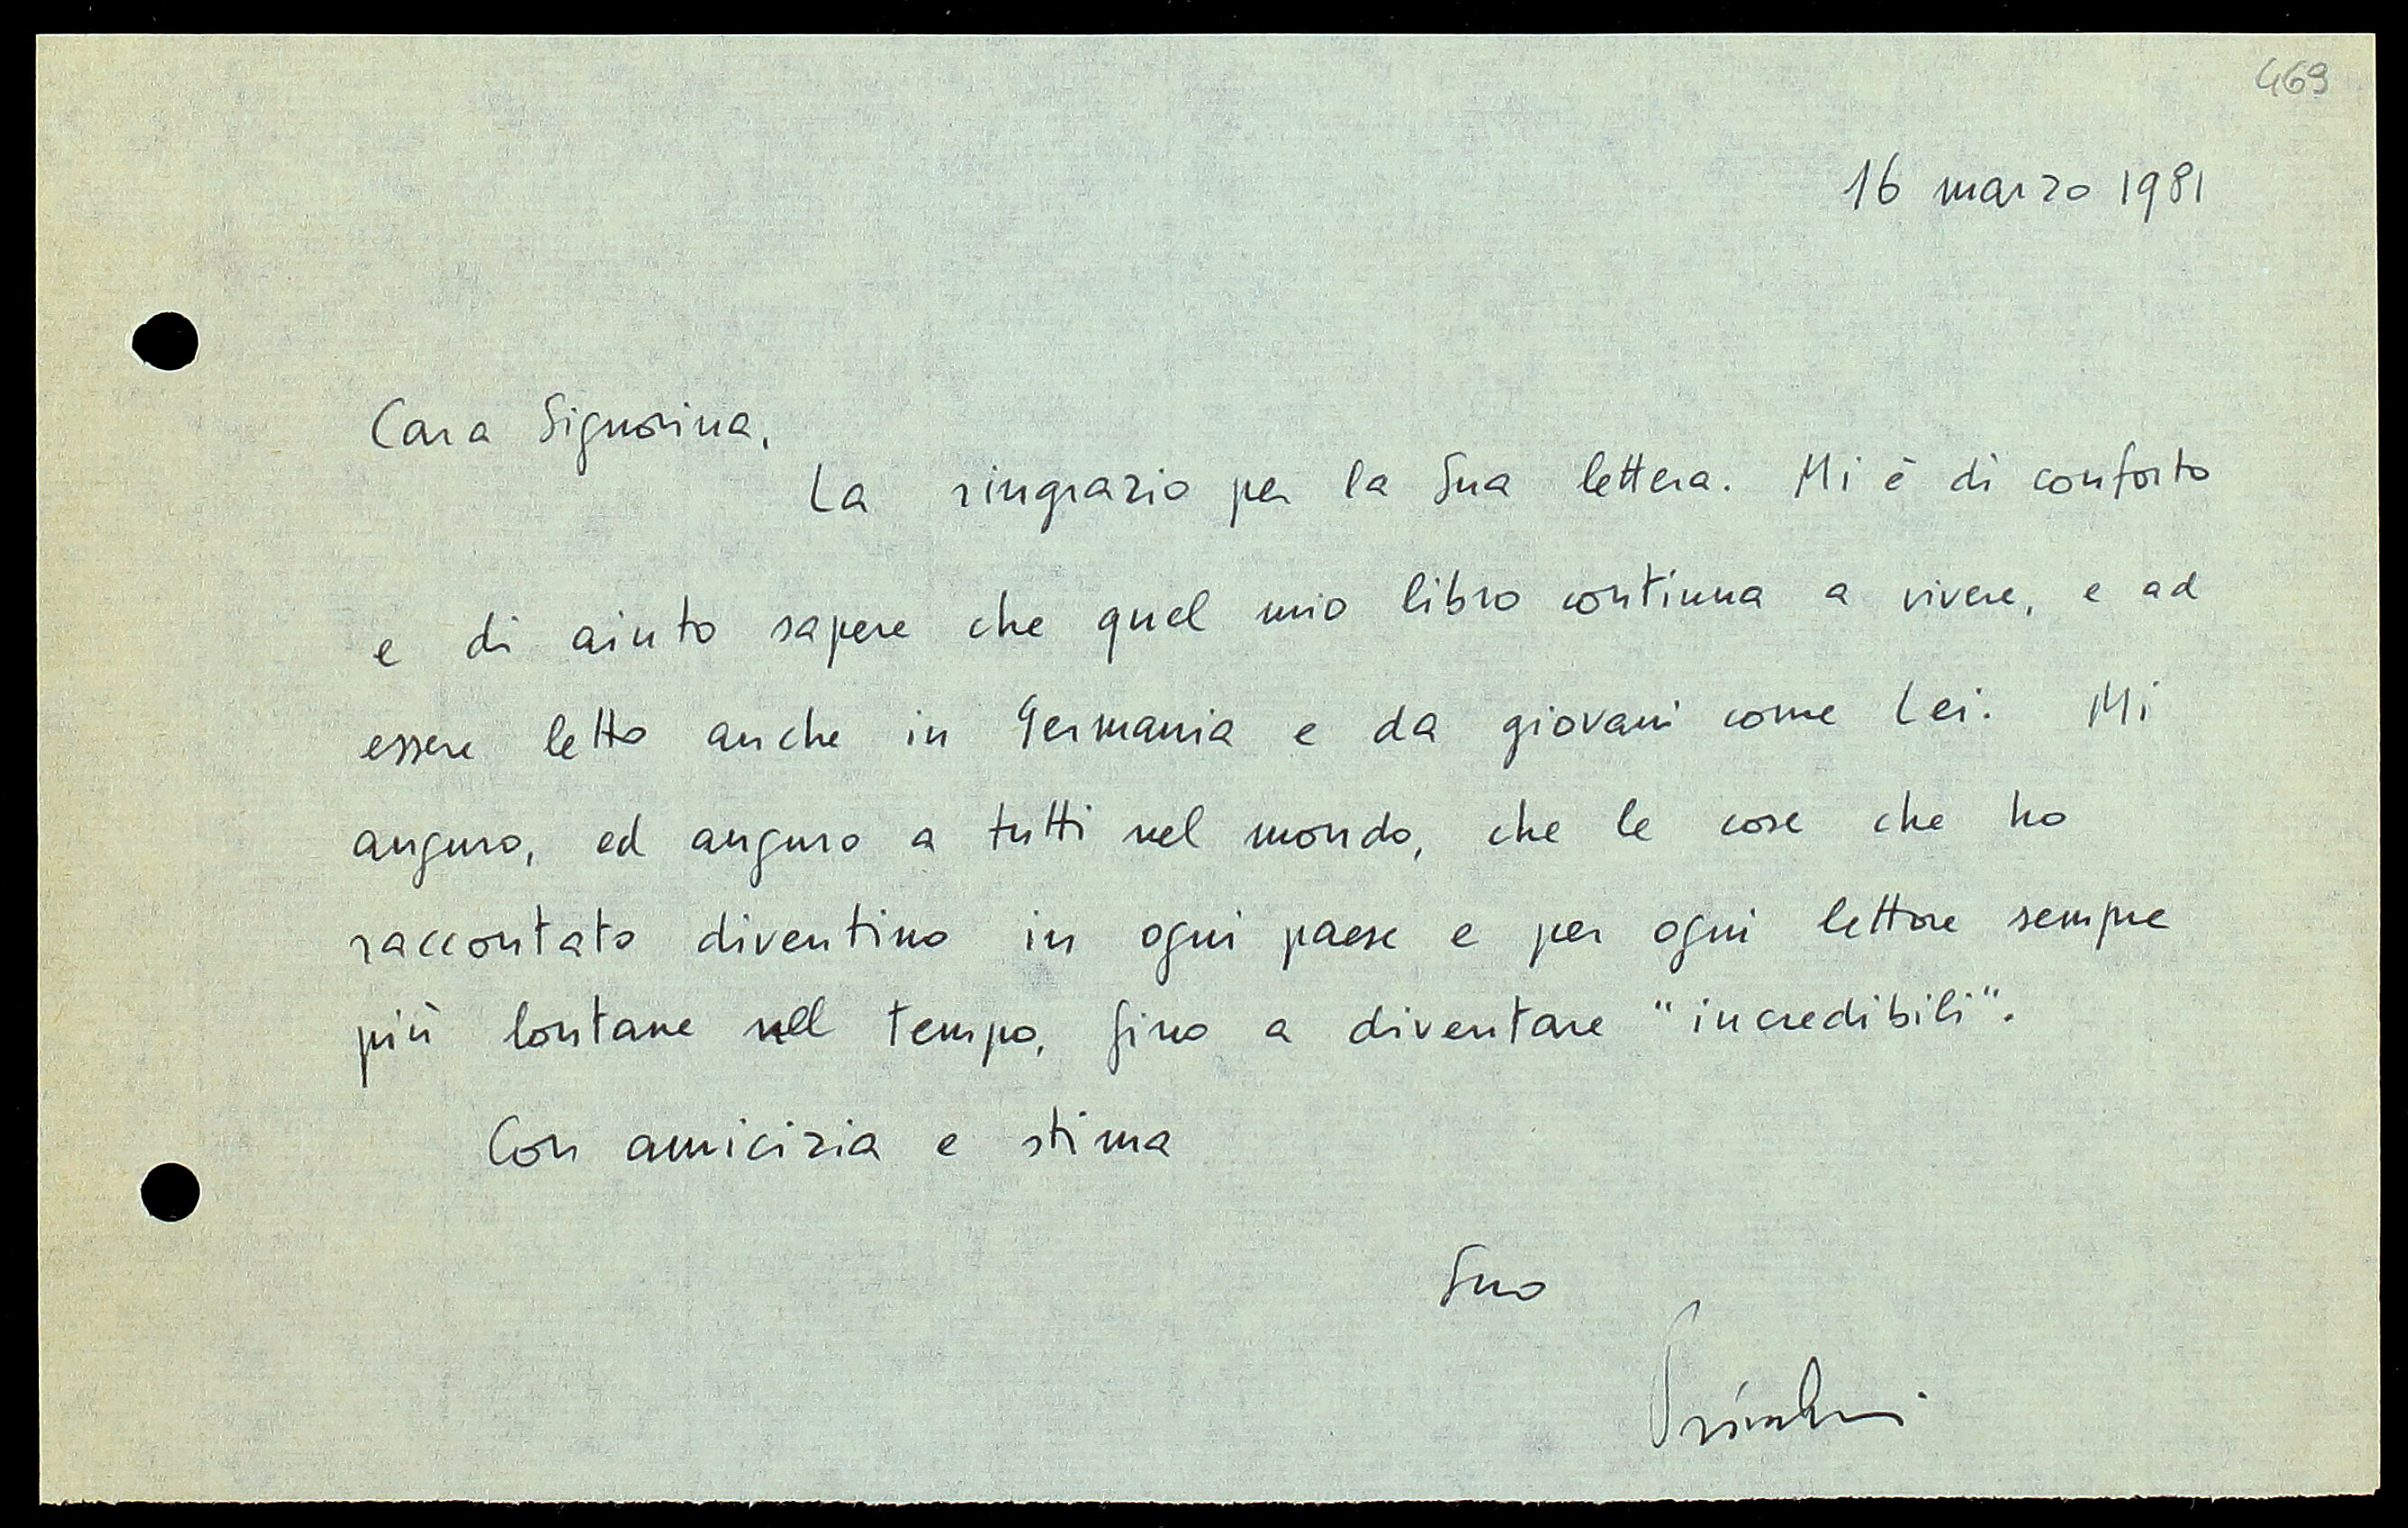 469
16 marzo 1981
Cara Signorina,
La ringrazio per la Sua lettera. Mi è di conforto
e di aiuto sapere che quel mio libro continua a vivere, e ad
essere letto anche in Germania e da giovani come Lei. Mi
auguro, ed auguro a tutti nel mondo, che le cose che ho
raccontato diventino in ogni paese e per ogni lettore sempre
più lontane nel tempo, fino a diventare "incredibili".
Con amicizia e stima
Suo
Primo Levi